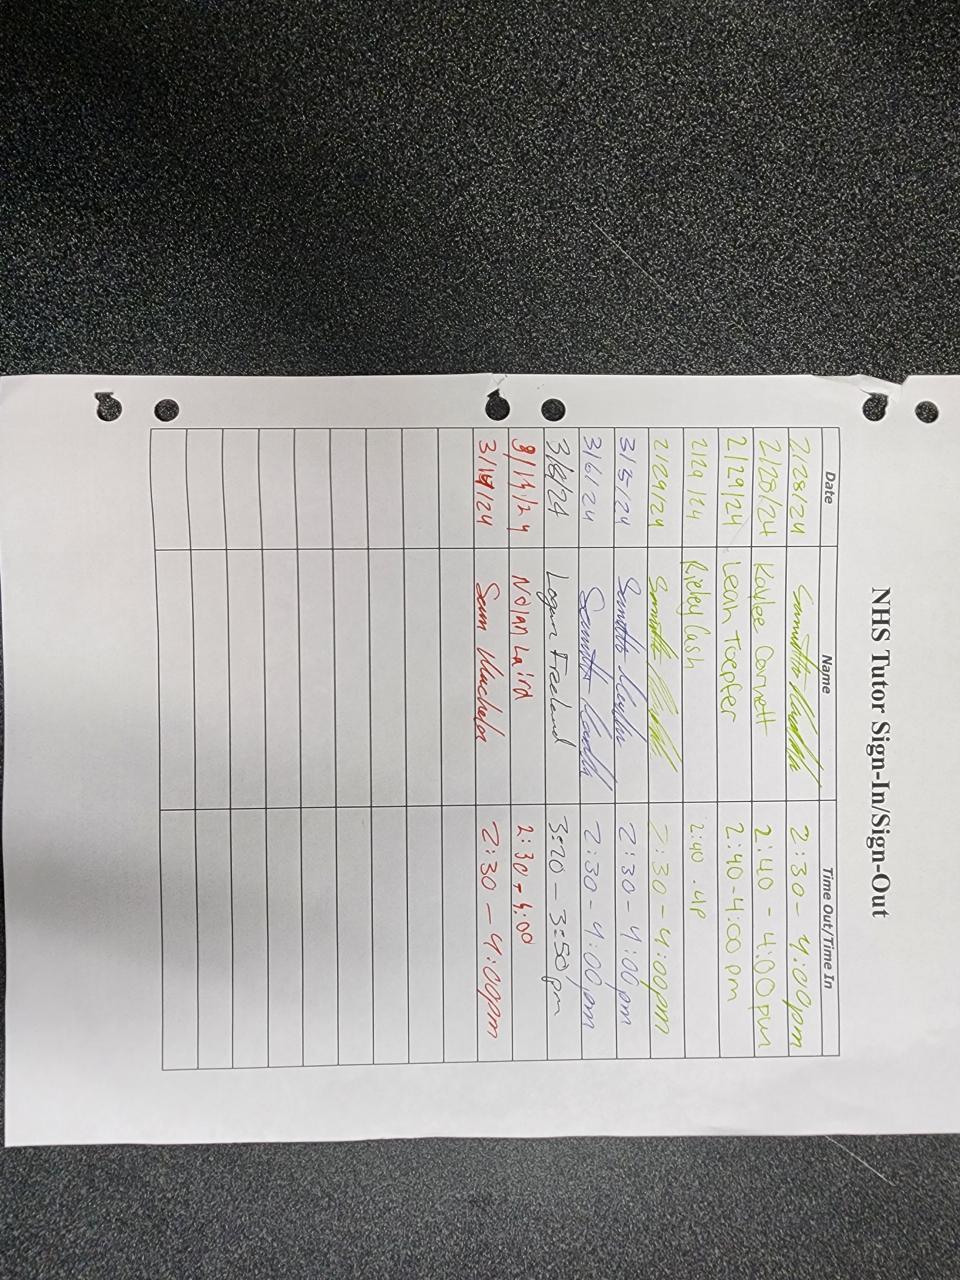 NHS Tutor Sign-In/Sign-Out
Date Name Time Out/Time In
2/28/24 2:30 - 4:00pm
2/28/24 Kaylee Cornett 2:40 - 4:00 pm
2/29/24 Leah Toepfer 2:40-4:00 pm
2/29/24 Ripley Cash 2:40 - 4P
2/29/24 2:30 - 4:00pm
3/5/24 2:30 - 4:00pm
3/6/24 2:30 - 4:00pm
Logan Freeland 3:20 - 3:50pm
Nolan Laird 2:30 - 4:00
2:30 - 4:00pm